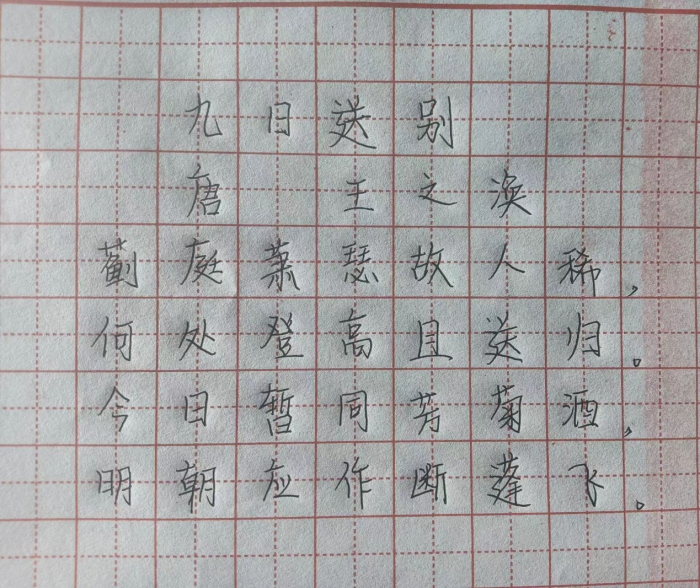 九日送别
唐 王之涣
蓟庭萧瑟故人稀，
何处登高且送归。
今日暂同芳菊酒，
明朝应作断蓬飞。